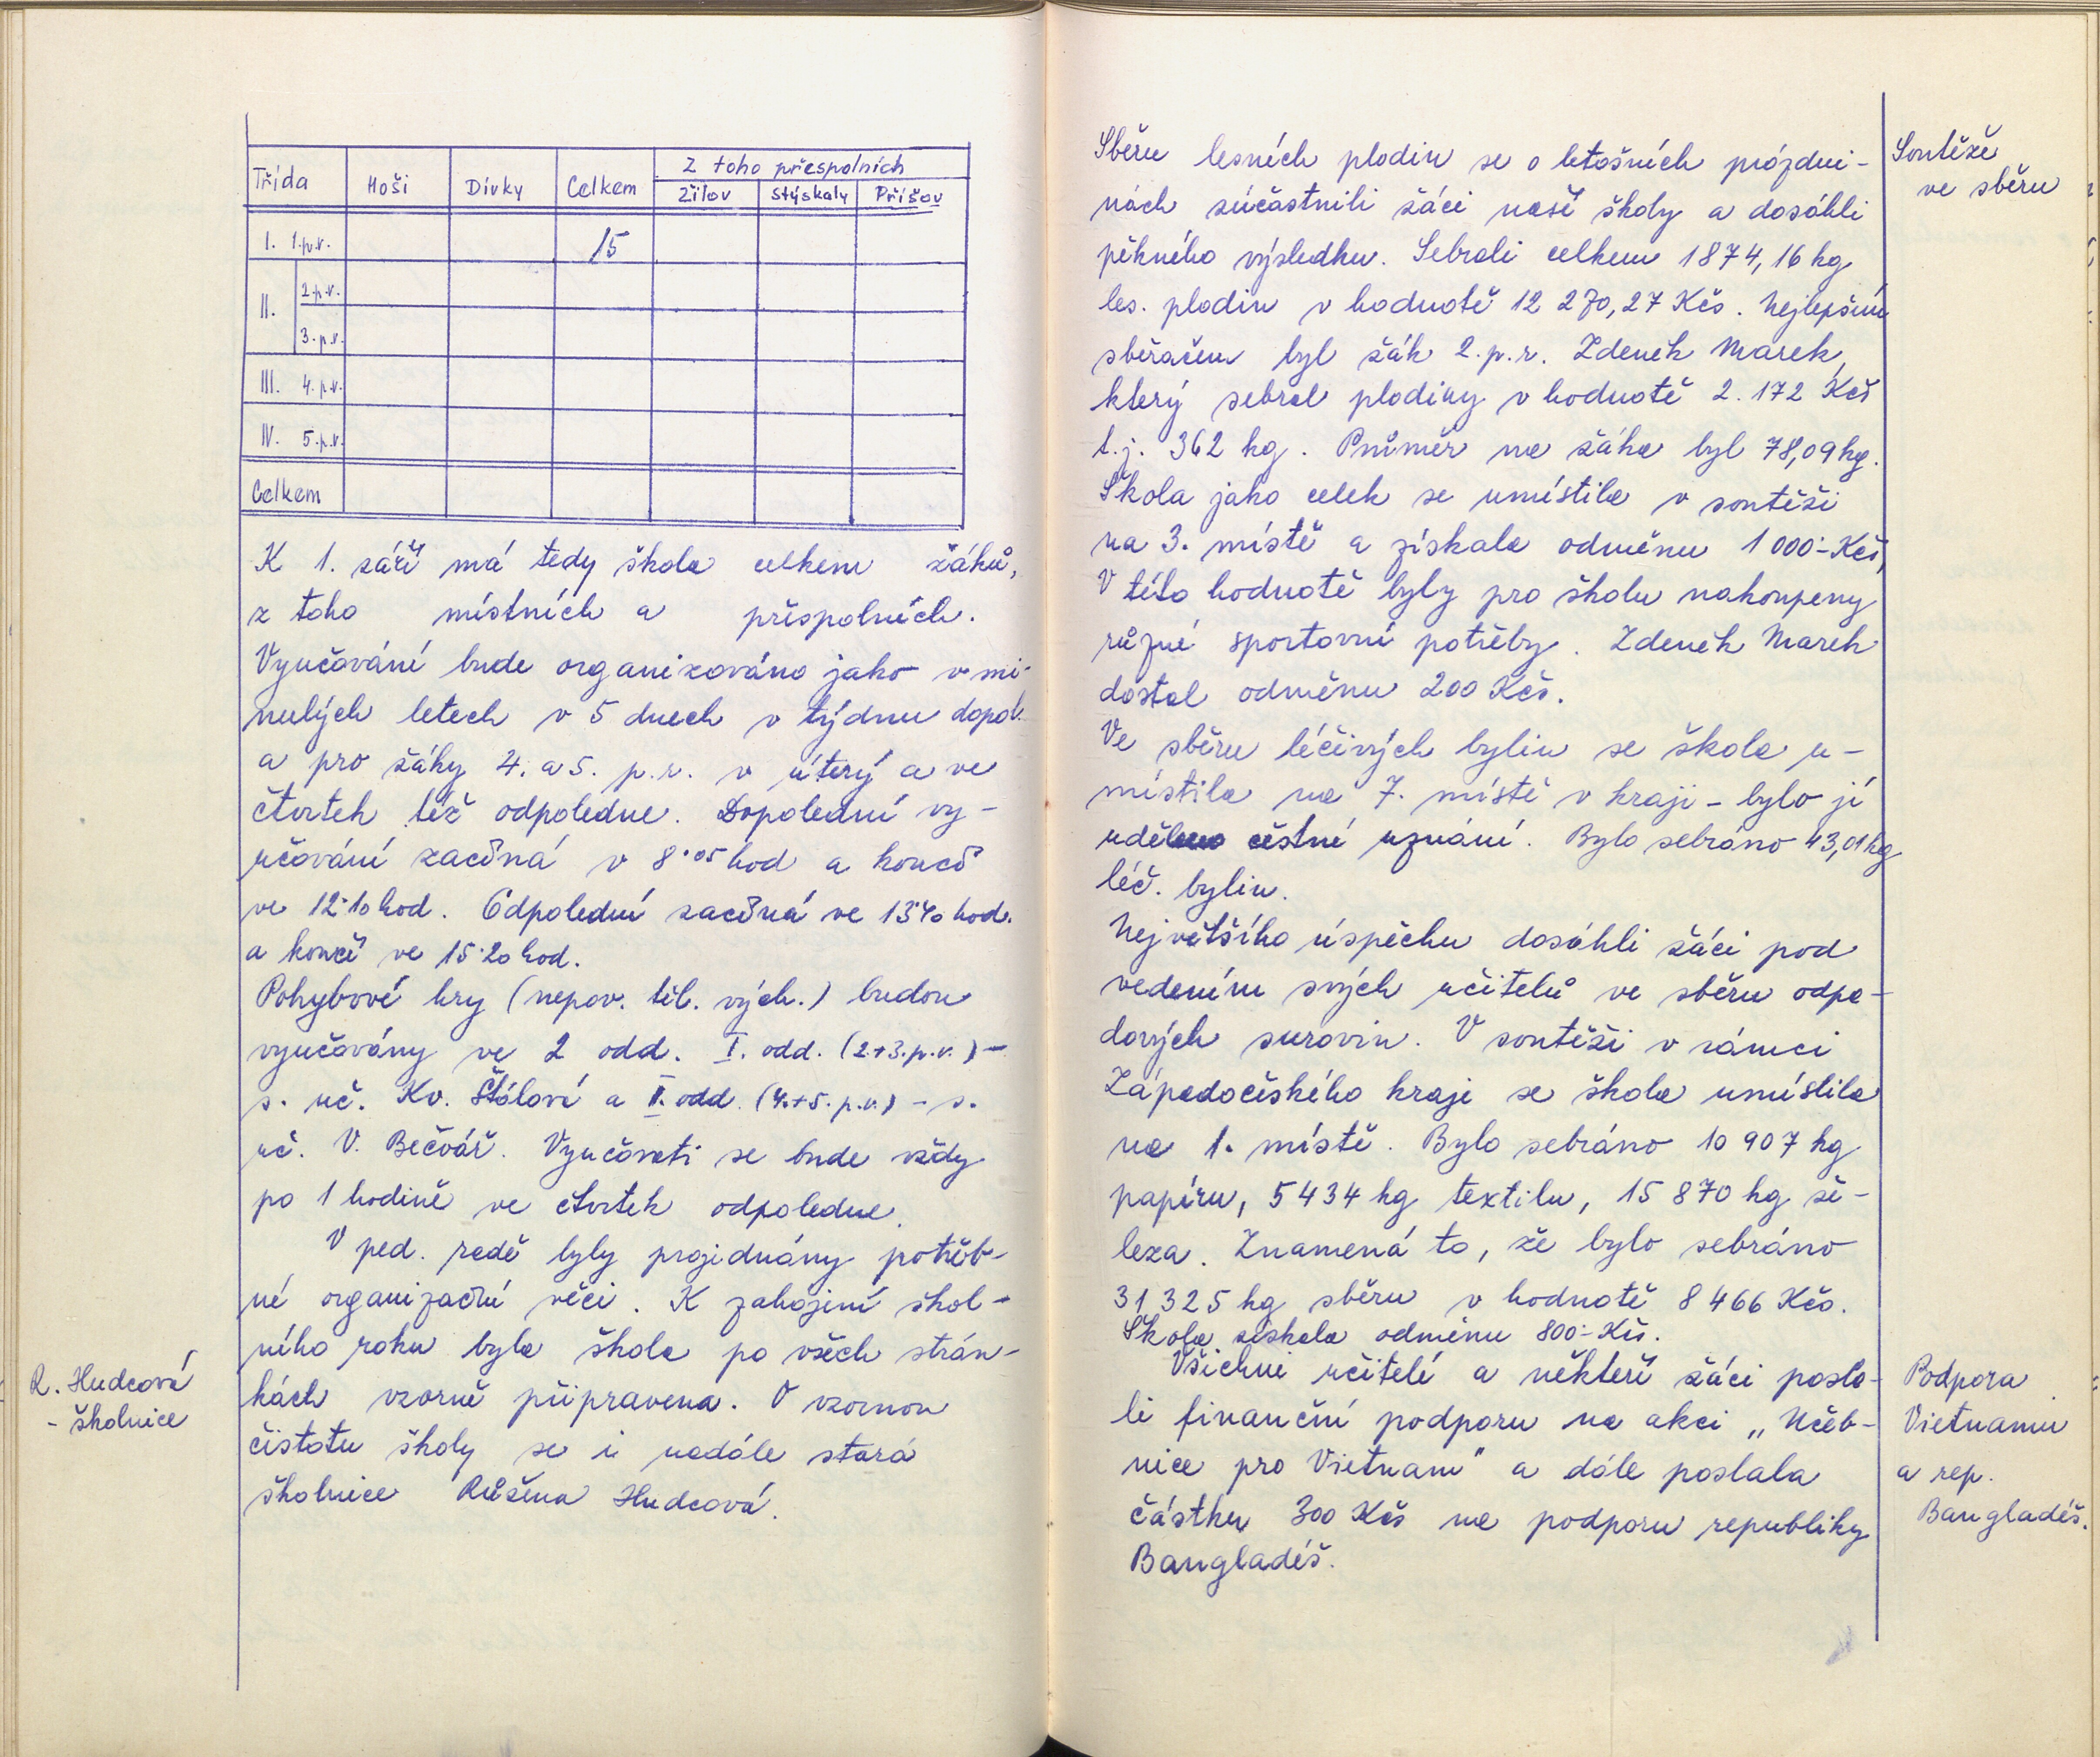 Třída Hoši Dívky Celkem Z toho přespolních
Žilov Stýskaly Příšov
I. 1.p.r. 15
II. 2.p.r.
3.p.r.
III. 4.p.r.
IV. 5.p.r.
Celkem
K 1. září má tedy škola celkem žáků,
z toho místních a přespolních.
Vyučování bude organizováno jako v mi-
nulých letech v 5 dnech v týdnu dopol.
a pro žáky 4. a 5. p.r. v úterý a ve
čtvrtek též odpoledne. Dopolední vy-
učování začíná v 8·05 hod a končí
ve 12·10 hod. Odpolední začíná ve 13·40 hod.
a končí ve 15·20 hod.
Pohybové hry (nepov. těl. vých.) budou
vyučovány ve 2 odd. I. odd. (2.+3.p.r.) -
s. uč. Kv. Štólová a II. odd. (4.+5. p.r.) - s.
uč. V. Bečvář. Vyučovati se bude vždy
po 1 hodině ve čtvrtek odpoledne.
V ped. radě byly projednány potřeb-
né organizační věci. K zahájení škol-
ního roku byla škola po všech strán-
R. Hudcová
- školnice
kách vzorně připravena. O vzornou
čistotu školy se i nadále stará
školnice Růžena Hudcová.
Soutěže
ve sběru
Sběru lesních plodin se o letošních prázdni-
nách súčastnili žáci naší školy a dosáhli
pěkného výsledku. Sebrali celkem 1874,16 kg
les. plodin v hodnotě 12 270,27 Kčs. Nejlepším
sběračem byl žák 2.p.r. Zdeněk Marek,
který sebral plodiny v hodnotě 2.172 Kčs
t.j. 362 kg. Průměr na žáka byl 78,09 kg.
Škola jako celek se umístila v soutěži
na 3. místě a získala odměnu 1 000·- Kčs,
V této hodnotě byly pro školu nakoupeny
různé sportovní potřeby. Zdeněk Marek
dostal odměnu 200 Kčs.
Ve sběru léčivých bylin se škola u-
místila na 7. místě v kraji - bylo jí
uděleno čestné uznání. Bylo sebráno 43,01 kg
léč. bylin.
Největšího úspěchu dosáhli žáci pod
vedením svých učitelů ve sběru odpa-
dových surovin. V soutěži v rámci
Západočeského kraje se škola umístila
na 1. místě. Bylo sebráno 10 907 kg
papíru, 5 434 kg textilu, 15 870 kg že-
leza. Znamená to, že bylo sebráno
31 325 kg sběru v hodnotě 8 466 Kčs.
Škola získala odměnu 800·- Kčs.
Všichni učitelé a někteří žáci posla-
li finanční podporu na akci „Učeb-
nice pro Vietnam" a dále poslala
částku 300 Kčs na podporu republiky
Bangladéš.
Podpora
Vietnamu
a rep.
Bangladéš.